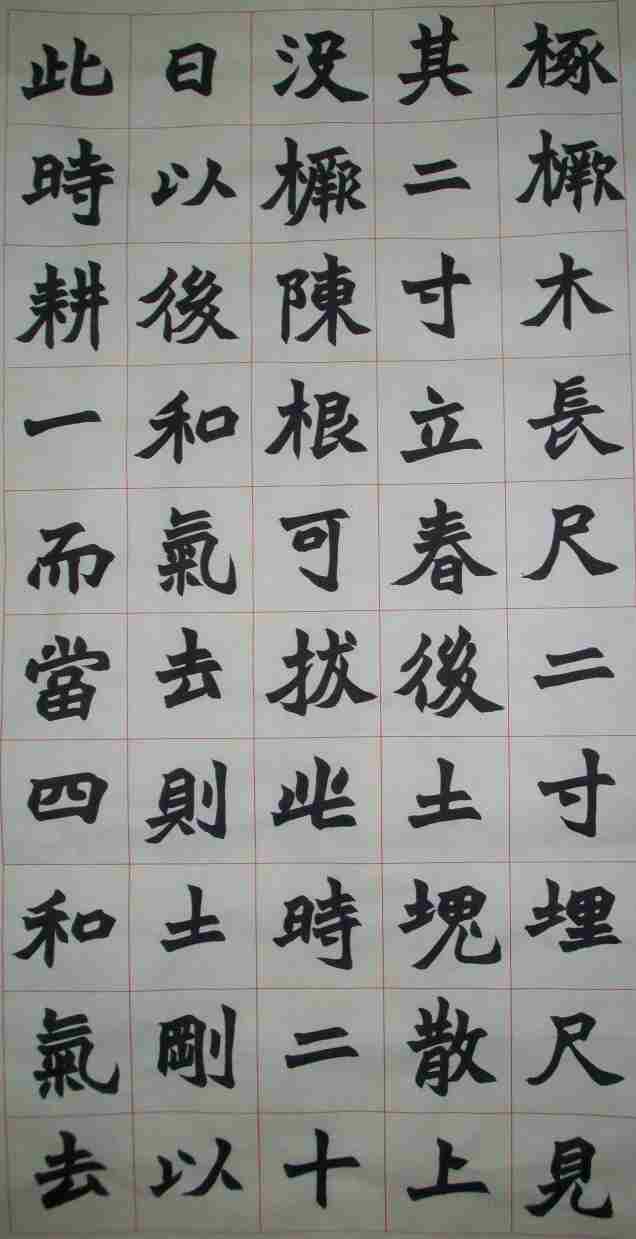 椓橛木長尺二寸埋尺見
其二寸立春後土塊散上
没橛陳根可拔此時二十
日以後和氣去則土剛以
此時耕一而當四和氣去